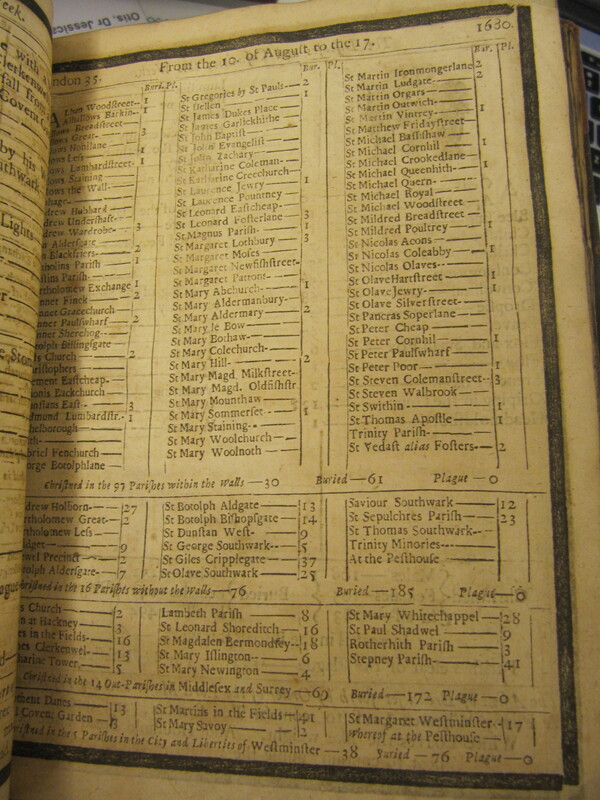 Otis, Dr Jessica
eek.
ndon 35.
From the 10. of Auguſt to the 17.
1680.
Bur. Pl.
Woodſtreet-- 1
Barkin-- 1
Breadſtreet---
Great---- 3
Honilane-
Leſs 1
Lumbardſtreet- 1
Staining
ows the Wall-
drew Hubbard
drew Underſhaft-
drew Wardrobe- 3
Alderſgate
n Blackfriers 2
Pariſh 1
ſtins Pariſh
rtholomew Exchange 1
nnet Finck 2
nnet Gracechurch
nnet Paulſwharf 2
nnet Sherehog
olph Billingſgate
Church 2
riſtophers
ement Eaſtcheap-
onis Backchurch
unſtans Eaſt 3
dmund Lumbardſtr.- 1
helborough
briel Fenchurch
orge Botolphlane
Bur. Pl.
St Gregories by St Pauls 2
St Hellen 1
St James Dukes Place
St James Garlickhithe
St John Baptiſt
St John Evangeliſt
St John Zachary
St Katharine Coleman-
St Katharine Creechurch
St Laurence Jewry 1
St Laurence Pountney
St Leonard Eaſtcheap
St Leonard Foſterlane 3
St Magnus Pariſh 1
St Margaret Lothbury 3
St Margaret Moſes
St Margaret Newfiſhſtreet-
St Margaret Pattons
St Mary Abchurch 1
St Mary Aldermanbury-
St Mary Aldermary 2
St Mary le Bow
St Mary Bothaw
St Mary Colechurch-
St Mary Hill- 2
St Mary Magd. Milkſtreet-
St Mary Magd. Oldfiſhſtr
St Mary Mounthaw
St Mary Sommerſet 1
St Mary Staining-
St Mary Woolchurch
St Mary Woolnoth
Bur. Pl.
St Martin Ironmongerlane 2
St Martin Ludgate 2
St Martin Orgars
St Martin Outwich
St Martin Vintrey 1
St Matthew Fridayſtreet
St Michael Baſſiſhaw
St Michael Cornhil 1
St Michael Crookedlane
St Michael Queenhith 1
St Michael Quern
St Michael Royal
St Michael Woodſtreet
St Mildred Breadſtreet
St Mildred Poultrey 1
St Nicolas Acons
St Nicolas Coleabby 1
St Nicolas Olaves
St Olave Hartſtreet 1
St Olave Jewry 1
St Olave Silverſtreet
St Pancras Soperlane
St Peter Cheap
St Peter Cornhil 1
St Peter Paulſwharf
St Peter Poor 1
St Steven Colemanſtreet 3
St Steven Walbrook
St Swithin 1
St Thomas Apoſtle 1
Trinity Pariſh
St Vedaſt alias Foſters- 2
Chriſtned in the 97 Pariſhes within the Walls—30 Buried—61 Plague—0
drew Holborn 27
rtholomew Great- 2
rtholomew Leſs
9
Precinct 2
tolph Alderſgate- 7
St Botolph Aldgate 13
St Botolph Biſhopſgate 14
St Dunſtan Weſt- 9
St George Southwark- 5
St Giles Cripplegate 37
St Olave Southwark 25
Saviour Southwark 12
St Sepulchres Pariſh 23
St Thomas Southwark
Trinity Minories
At the Peſthouſe
hriſtned in the 16 Pariſhes without the Walls—76 Buried—185 Plague—0
s Church 2
n at Hackney 3
es in the Fields- 16
es Clerkenwel- 13
harine Tower 5
Lambeth Pariſh 8
St Leonard Shoreditch 16
St Magdalen Bermondſey- 18
St Mary Iſlington- 6
St Mary Newington 4
St Mary Whitechappel 28
St Paul Shadwel 9
Rotherhith Pariſh 3
Stepney Pariſh 41
Chriſtned in the 14 Out-Pariſhes in Middleſex and Surrey—69 Buried—172 Plague—0
ment Danes 13
Covent Garden 3
St Martins in the Fields 41
St Mary Savoy 2
St Margaret Weſtminſter 17
Whereof at the Peſthouſe
riſtned in the 5 Pariſhes in the City and Liberties of Weſtminſter—38 Buried—76 Plague—0